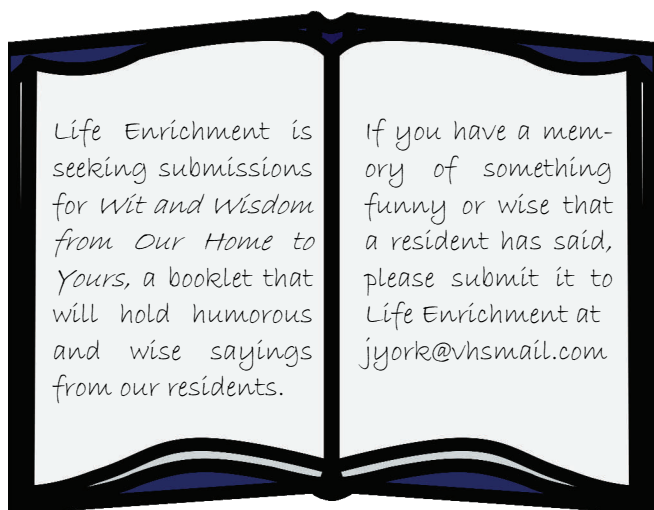 Life Enrichment is
seeking submissions
for Wit and Wisdom
from Our Home to
Yours, a booklet that
will hold humorous
and wise sayings
from our residents.
If you have a mem-
ory of something
funny or wise that
a resident has said,
please submit it to
Life Enrichment at
jyork@vhsmail.com